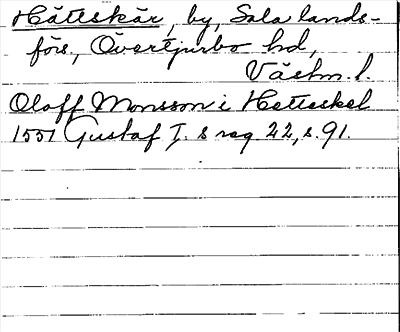 Hätteskär, by, Sala lands-
förs, Övertjurbo hd,
Västm. l.
Oloff Monsson i Hetteskel
1551 Gustaf I. s reg 22, s. 91.